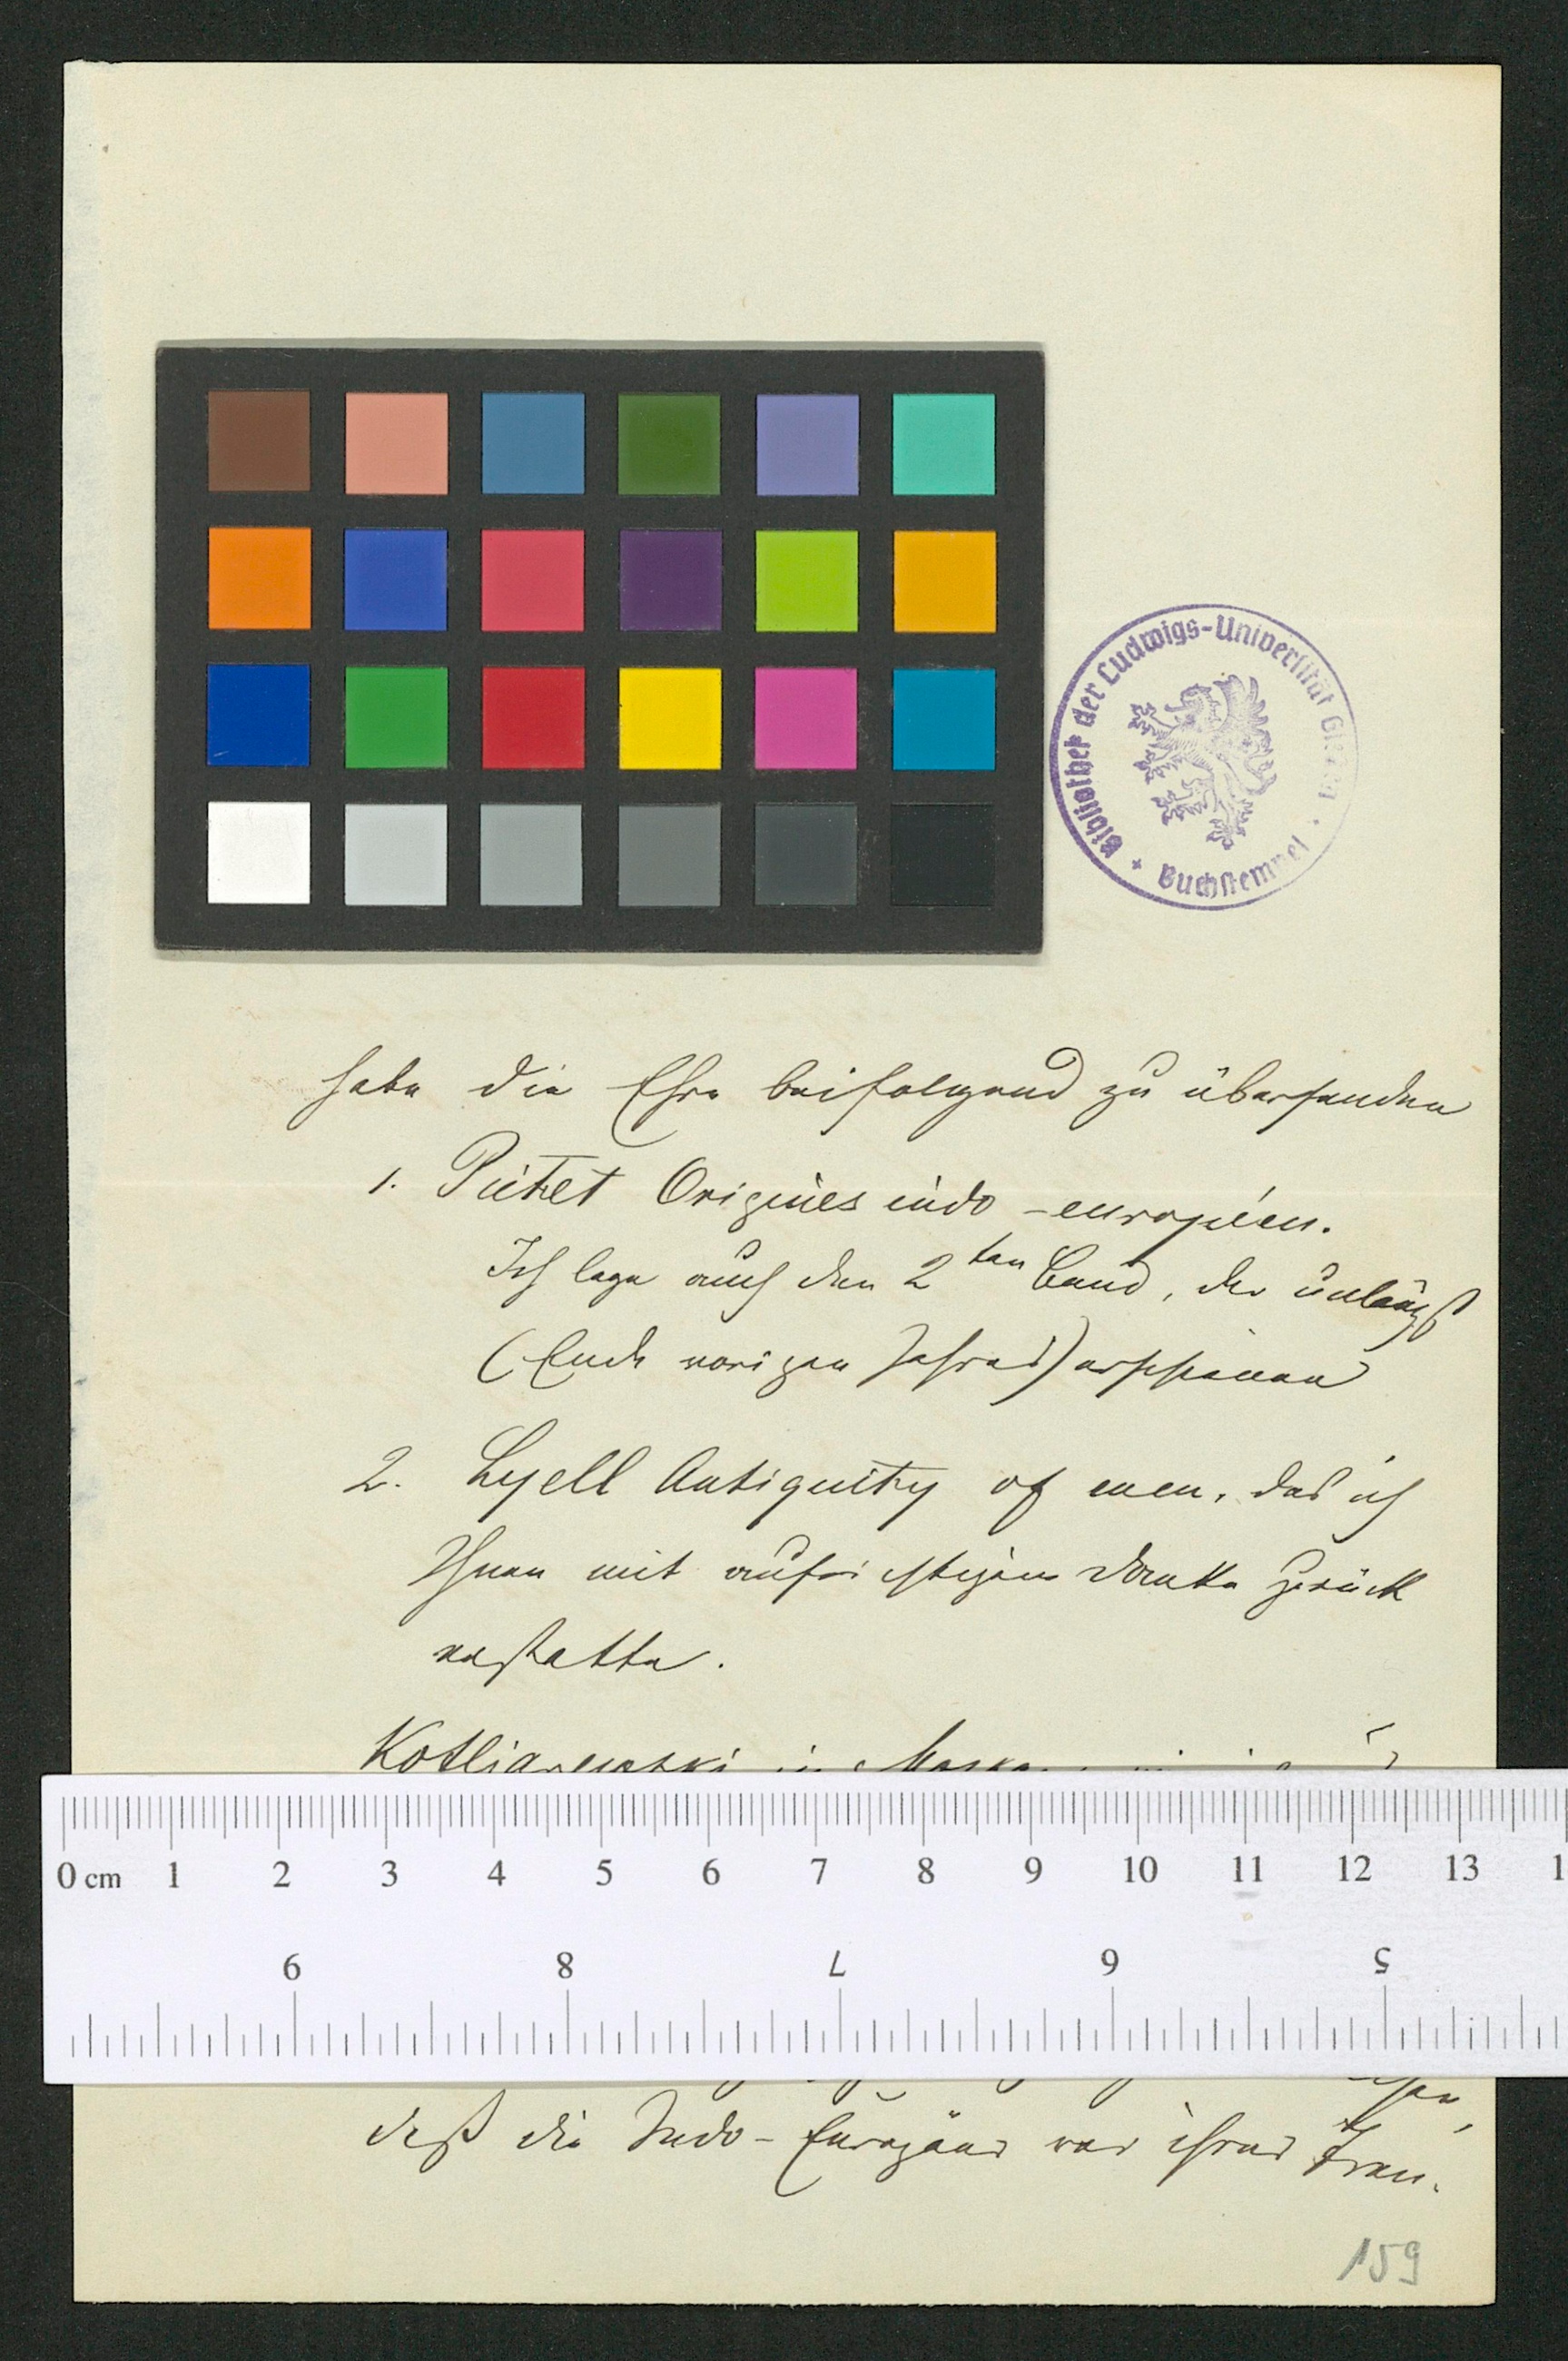 Bibliothek der Ludwigs-Universität Giessen
Buchstempel
habe die Ehre beifolgend zu übersenden
1. Pictet Origines indo-européen.
Ich lege auch den 2ten Band, der unlängst
(Ende vorigen Jahres) erschienen
2. Lyell Antiquity of men, das ich
Ihnen mit aufrichtigem Danke zurück
erstatte.
Kotliarewski in Moskau
0 cm 1 2 3 4 5 6 7 8 9 10 11 12 13 1
9 8 7 6 5
daß die Indo-Europäer vor ihrer Tren.
159